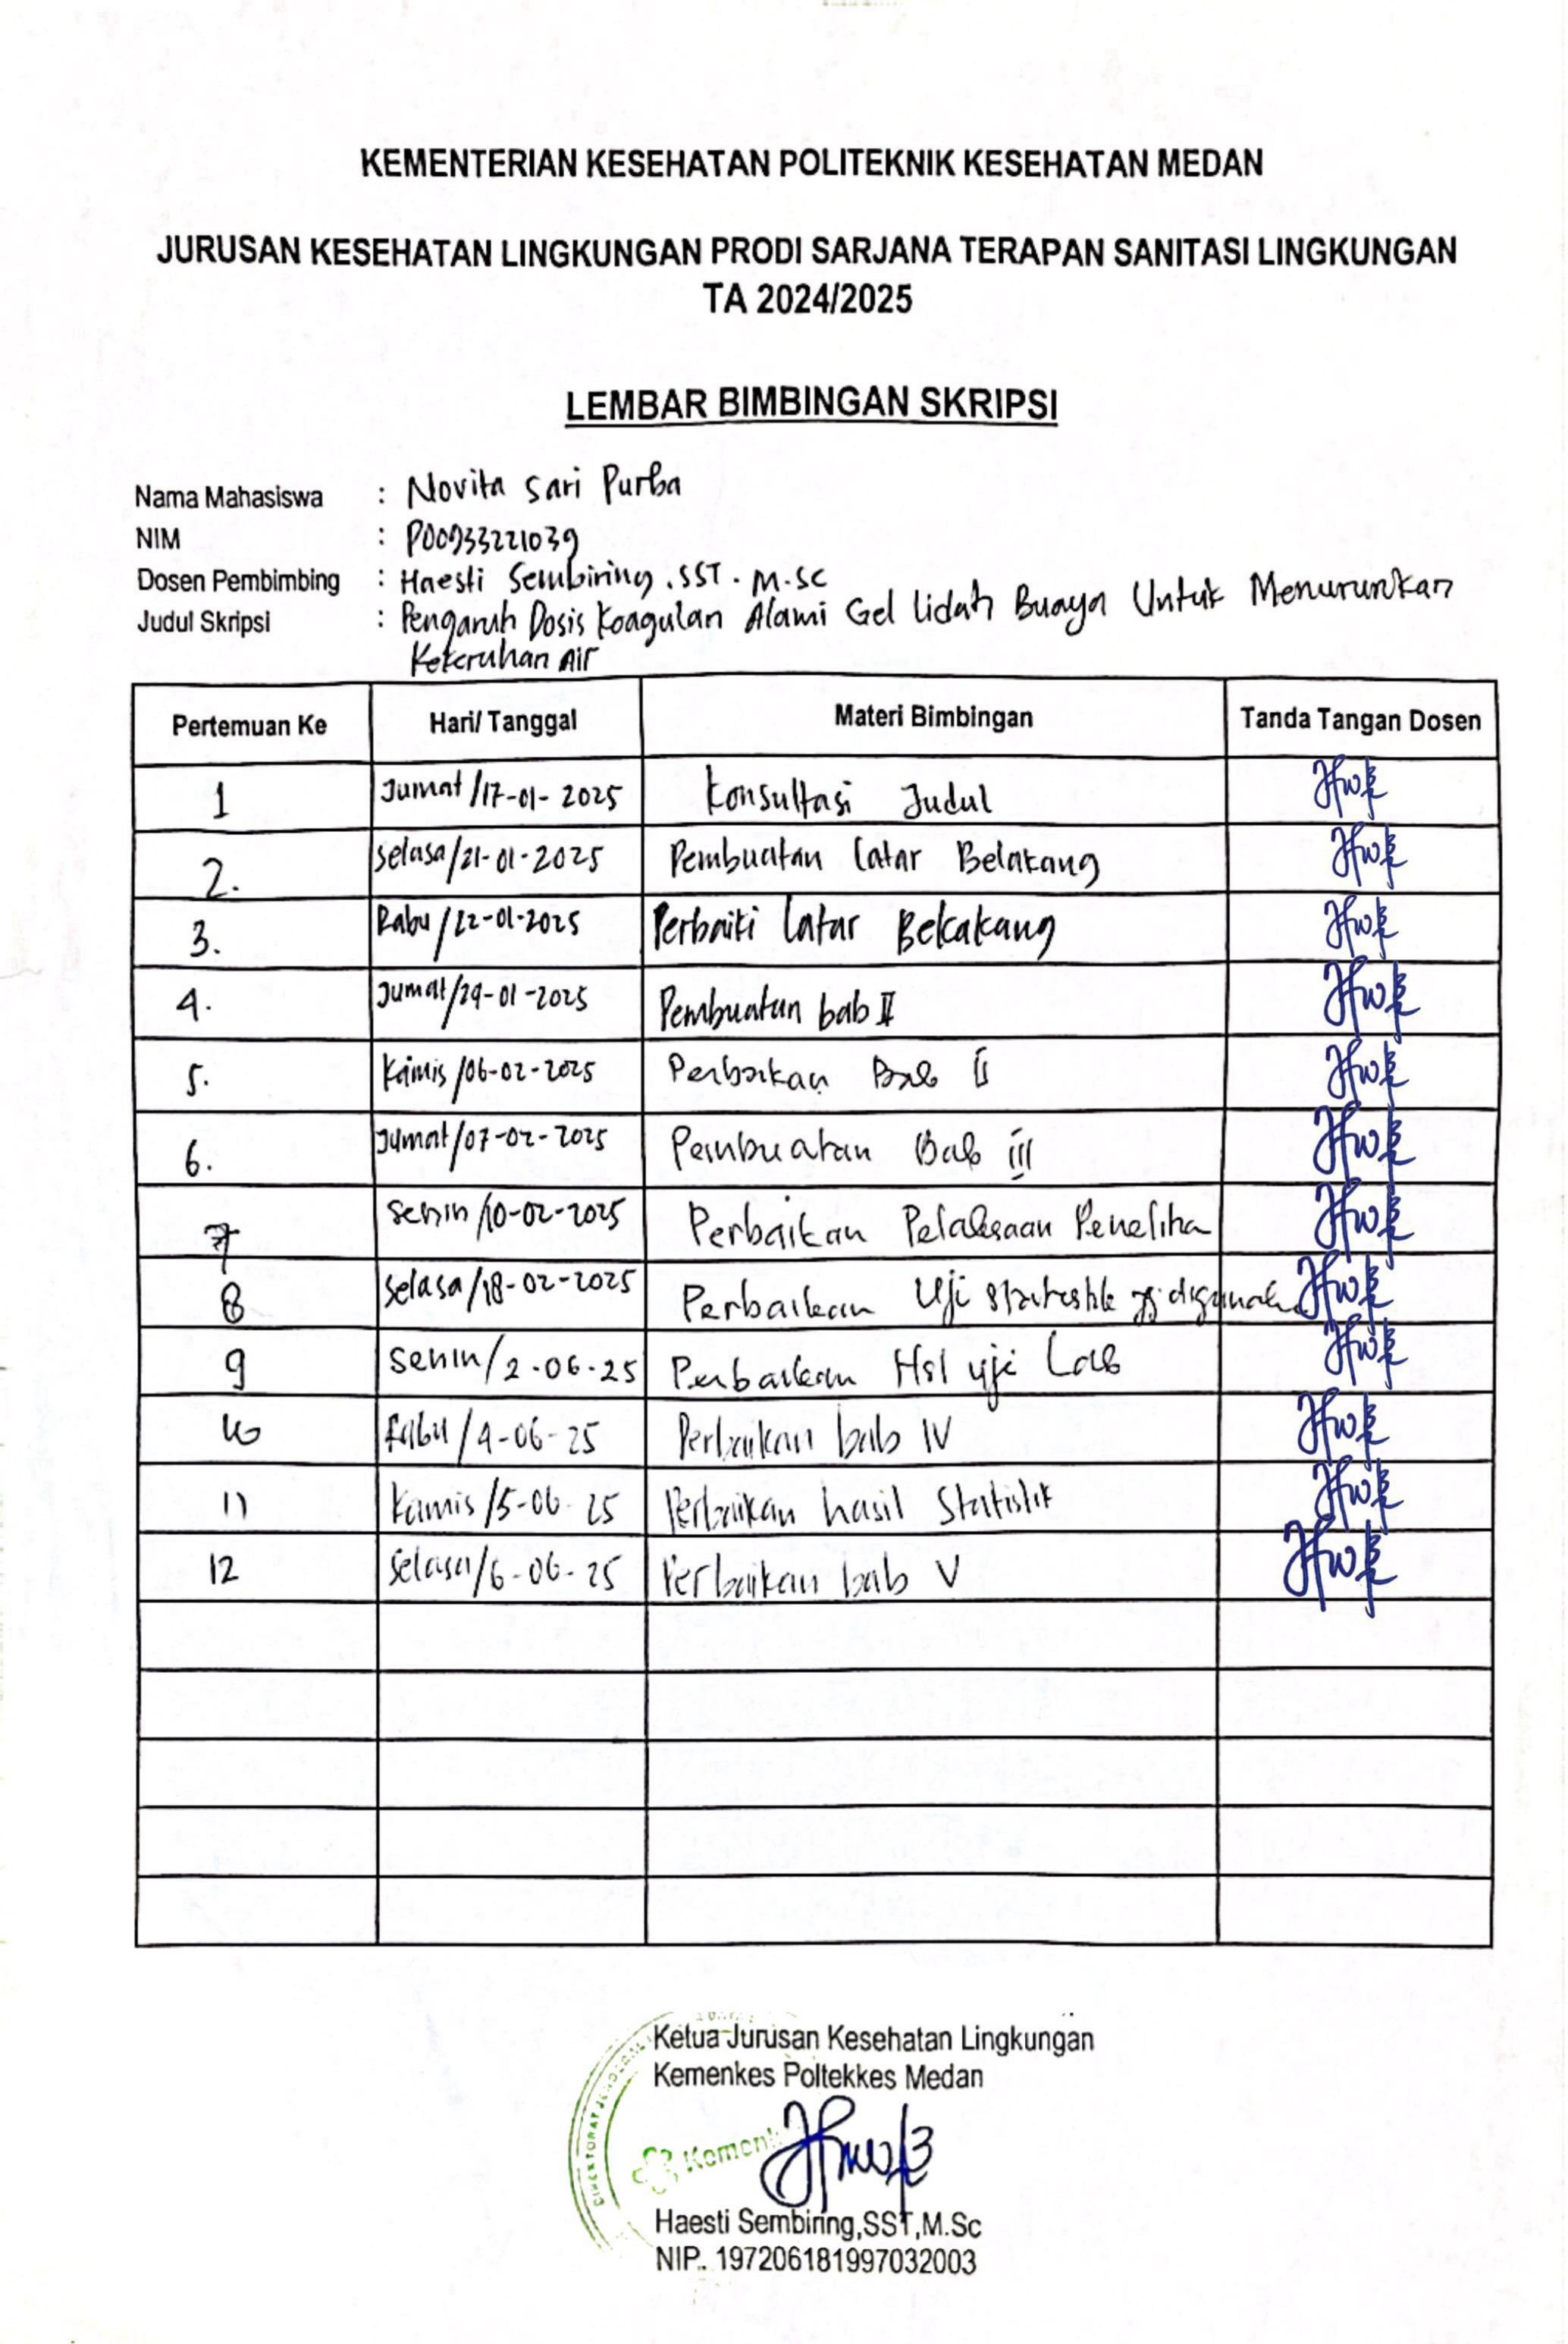 KEMENTERIAN KESEHATAN POLITEKNIK KESEHATAN MEDAN
JURUSAN KESEHATAN LINGKUNGAN PRODI SARJANA TERAPAN SANITASI LINGKUNGAN
TA 2024/2025
LEMBAR BIMBINGAN SKRIPSI
Nama Mahasiswa : Novita Sari Purba
NIM : P00933221039
Dosen Pembimbing : Haesti Sembiring.SST.M.SC
Judul Skripsi : Pengaruh Dosis Koagulan Alami Gel Lidah Buaya Untuk Menurunkan
Kekeruhan Air
Pertemuan Ke Hari/ Tanggal Materi Bimbingan Tanda Tangan Dosen
1 Jumat/17-01-2025 Konsultasi Judul
2. Selasa/21-01-2025 Pembuatan Latar Belakang
3. Rabu/22-01-2025 Perbaiki Latar Bekakang
4. Jumat/29-01-2025 Pembuatan bab II
5. Kamis/06-02-2025 Perbaikan Bab II
6. Jumat/07-02-2025 Pembuatan Bab III
7 Senin/10-02-2025 Perbaikan Pelaksaan Penelitia
8 Selasa/18-02-2025 Perbaikan Uji statistik yg digunakan
9 Senin/2-06-25 Perbaikan Hsl uji Lab
10 Rabu/4-06-25 Perbaikan bab IV
11 Kamis/5-06-25 Perbaikan hasil Statistik
12 Selasa/6-06-25 Perbaikan bab V
Ketua Jurusan Kesehatan Lingkungan
Kemenkes Poltekkes Medan
Kemenk
Haesti Sembiring,SST,M.Sc
NIP.. 197206181997032003